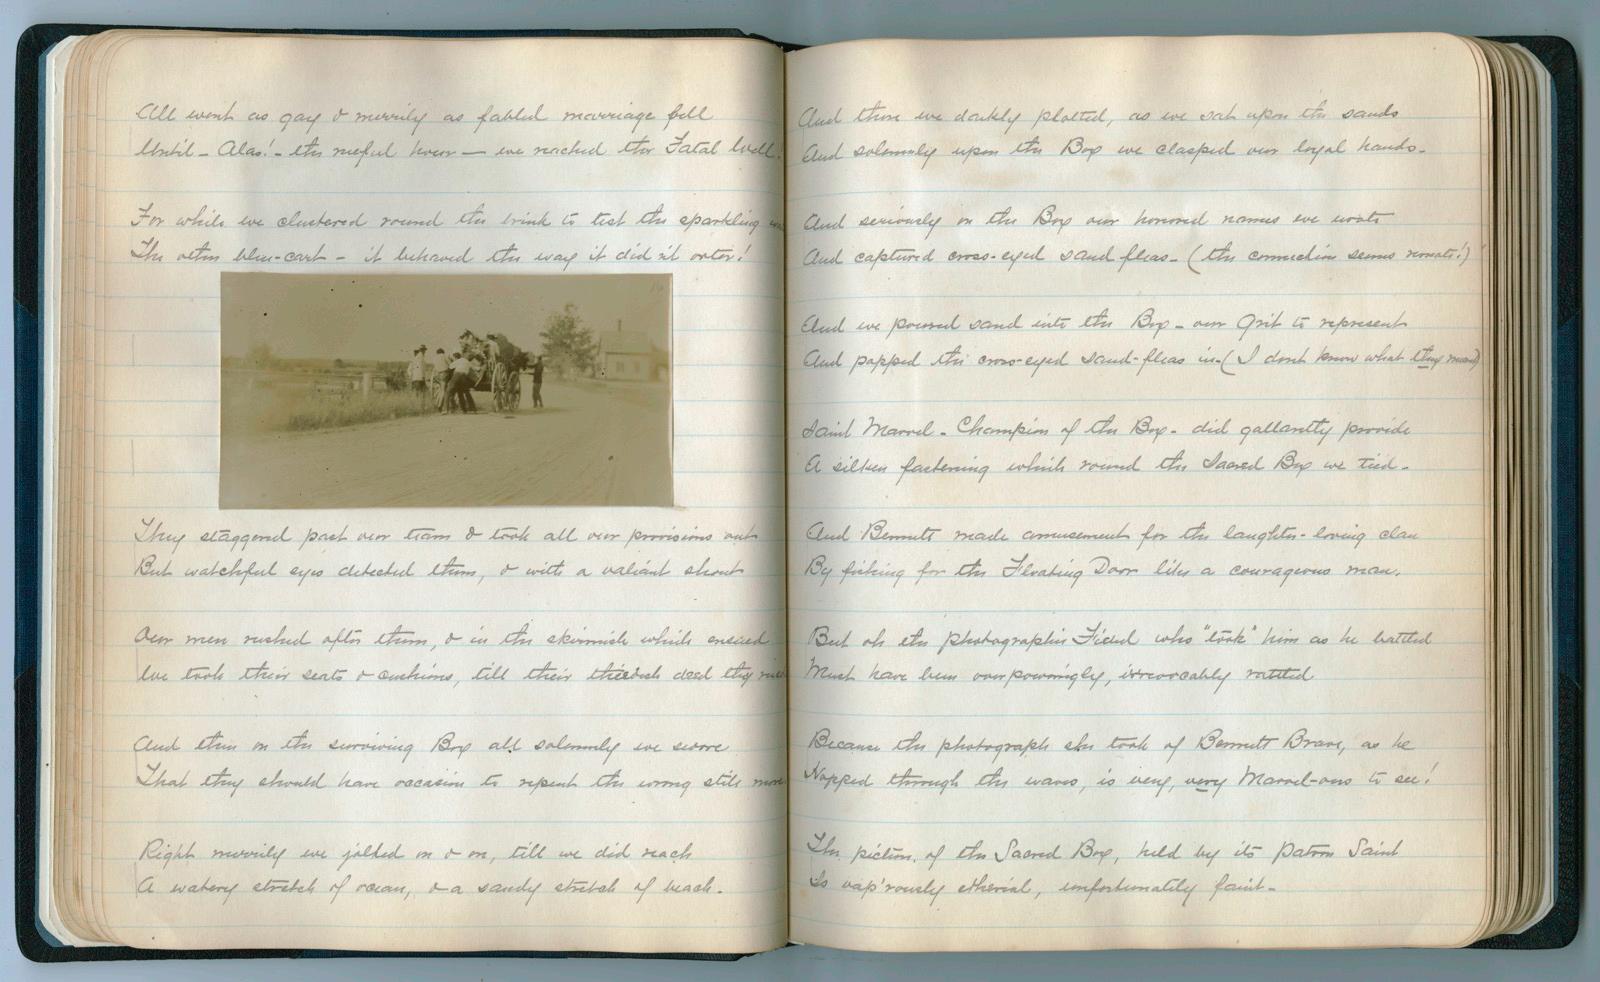 All went as gay & merrily as fabled marriage bell
Until - Alas! - the rueful hour — we reached the Fatal Well.
For while we clustered round the brink to test the sparkling
The other blue-cart - it behaved the way it did n't orter!
They staggered past our team & took all our provisions out
But watchful eyes detected them, & with a valiant shout
Our men rushed after them, & in the skirmish which ensued
We took their seats & cushions, till their thievish deed they
And then on the surviving Box all solemnly we swore
That they should have occasion to repent the wrong still more
Right merrily we jolted on & on, till we did reach
A watery stretch of ocean, & a sandy stretch of beach.
And there we darkly plotted, as we sat upon the sands
And solemnly upon the Box we clasped our loyal hands.
And seriously on the Box our honored names we wrote
And captured cross-eyed sand fleas - (the connection seems remote!)
And we poured sand into the Box - our Grit to represent
And popped the cross-eyed sand-fleas in - (I dont know what they meant)
Saint Marvel - Champion of the Box - did gallantly provide
A silken fastening which round the Sacred Box we tied -
And Bennett made amusement for the laughter-loving clan
By fishing for the Floating Door like a courageous man.
But oh the photographic Fiend who "took" him as he battled
Must have been overpoweringly, irrevocably rattled
Because the photograph she took of Bennett Brave, as he
Hopped through the waves, is very, very Marvel-ous to see!
The picture of the Sacred Box, held by its Patron Saint
Is vap'rously etherial, unfortunately faint -